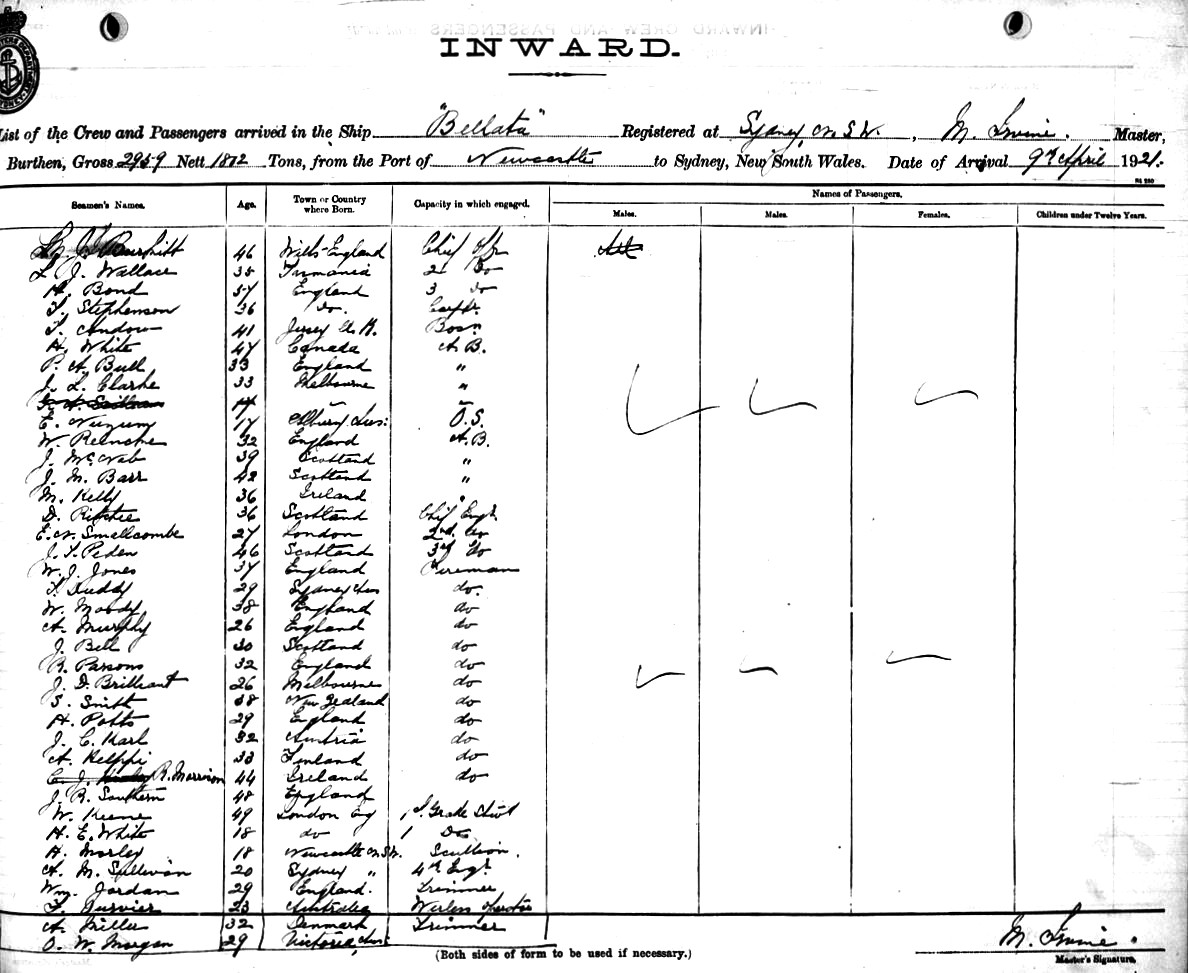 INWARD.
List of the Crew and Passengers arrived in the Ship "Bellata" Registered at Sydney N.S.W., M. Irvine. Master,
Burthen, Gross 2959 Nett 1872 Tons, from the Port of Newcastle to Sydney, New South Wales. Date of Arrival 9th April 1921.
Names of Passengers.
Seamen's Names. Age. Town or Country where Born. Capacity in which engaged. Males. Males. Females. Children under Twelve Years.
46 Wilts England Chief Ofr
L. J. Wallace 35 Tasmania 2 Do
H. Bond 57 England 3 do
T. Stephenson 36 do. Carptr.
T. Andow 41 Jersey Bosn
H. White 47 Canada A.B.
P. A. Bull 33 England "
J. L. Clarke 33 Melbourne "
17
E. 17 Albury O.S.
W. Reinche 32 England A.B.
J. McNab 39 Scotland "
J. M. Barr 42 Scotland "
M. Kelly 36 Ireland "
D. Ritchie 36 Scotland Chief Engr.
E. W. Smallcombe 27 London 2nd do
J. T. Peden 46 Scotland 3rd do
W. J. Jones 37 England Fireman
T. Duddy 29 Sydney do.
W. Moody 38 England do
A. Murphy 26 England do
J. Bell 30 Scotland do
R. Parsons 32 England do
J. D. Brilleant 26 Melbourne do
S. Smith 38 New Zealand do
H. Potts 29 England do
J. C. Karl 32 Austria do
A. Kelppi 33 Finland do
C. J. R. Morrison 44 Ireland do
J. R. Southern 48 England
W. Keene 49 London Eng 1 St. Grade Stwd
H. E. White 18 do 1 Do
H. Morley 18 Newcastle N.S.W. Scullion.
A. M. Sullivan 20 Sydney " 4th Engr.
Wm. Jordan 29 England. Trimmer
F. 23 Australia Wireless operator
A. Miller 32 Denmark Trimmer
O. W. Morgan 29 Victoria Aust
M. Irvine.
(Both sides of form to be used if necessary.)
Master's Signature.